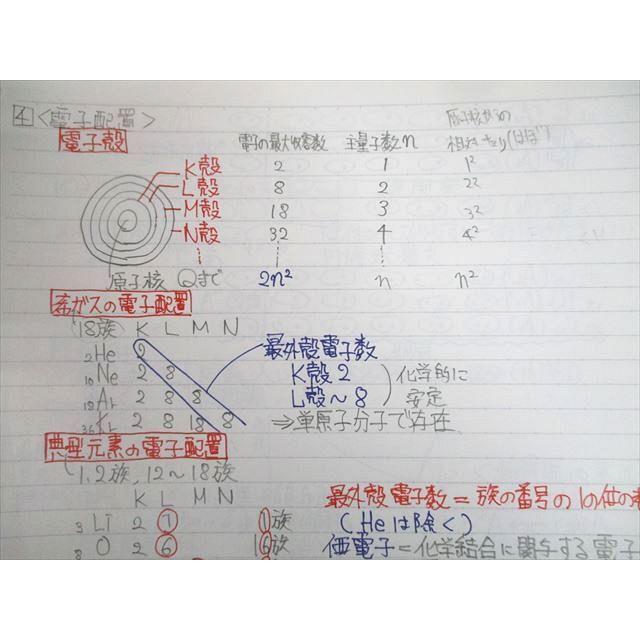 4 <電子配置>
電子殻
電子の最大収容数 主量子数n 原子核からの
相対きょり(ほぼ)
K殻 2 1 1²
L殻 8 2 2²
M殻 18 3 3²
N殻 32 4 4²
原子核 Qまで 2n² n n²
希ガスの電子配置
(18族) K L M N
₂He 2
₁₀Ne 2 8
₁₈Ar 2 8 8
₃₆Kr 2 8 18 8
最外殻電子数
K殻 2
L殻～8
化学的に
安定
⇒単原子分子で存在
典型元素の電子配置
1,2族, 12～18族
K L M N
₃Li 2 1 1族
₈O 2 6 16族
最外殻電子数=族の番号の1の位の
(Heは除く)
価電子=化学結合に関与する電子